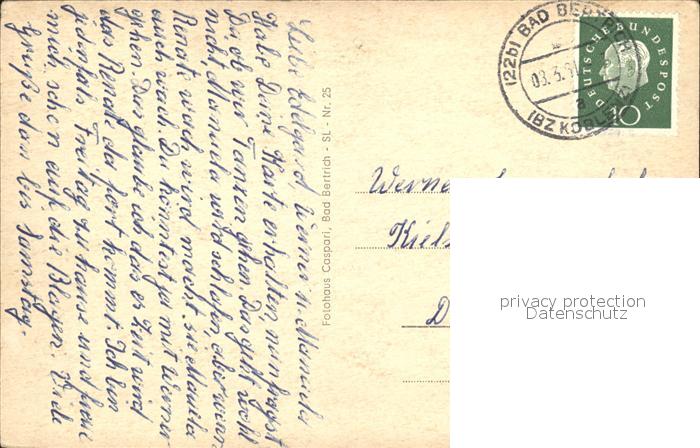 Liebe Edelgard, Werner u. Manuela
Habe Deine Karte erhalten, nun fragst
Du ob wir Tanzen gehen. Das geht wohl
nicht, Manuela wird schlafen, aber wenn
Renate wach wird macht sie Manuela
auch wach. Du könntest ja mit Werner
gehen. Das glaube ich das es Zeit wird
das Renate da fort kommt. Ich bin
jedenfals Freitag zuhause und freue
mich schon auf die Blagen. Viele
Grüße dan bis Samstag.
Fotohaus Caspari, Bad Bertrich - SL - Nr. 25
(22b) BAD BERTRICH
03.3.
a
(BZ KOBLENZ)
DEUTSCHE BUNDESPOST
10
Werner
Kiels
D
privacy protection
Datenschutz